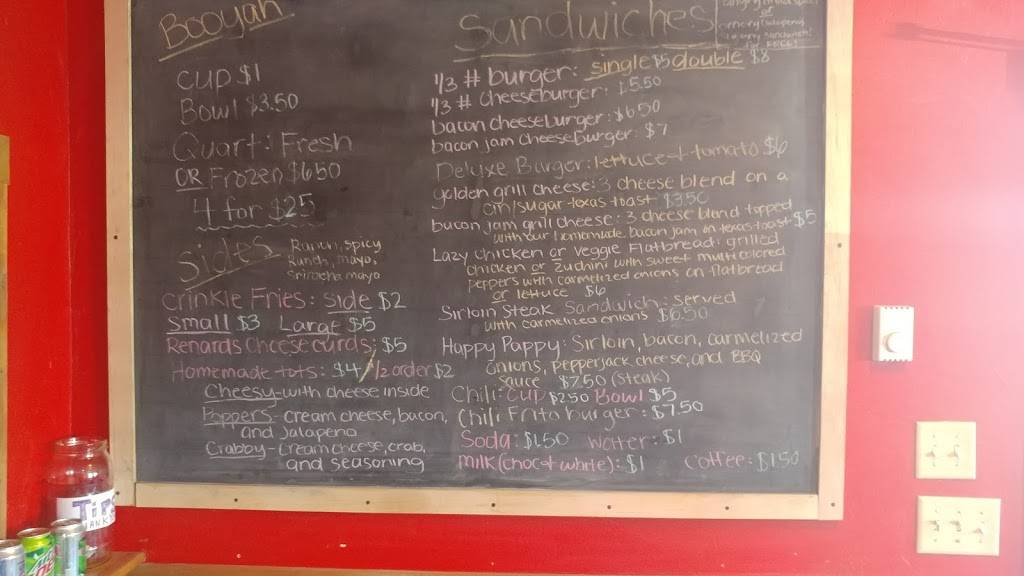 Booyah
cup $1
Bowl $3.50
Quart: Fresh
OR Frozen $6.50
4 for $25
Sides
Ranch, spicy
Ranch, mayo,
Sriracha mayo
Crinkle Fries: side $2
small $3 Large $5
Renards Cheese curds: $5
Homemade tots: $4 / 1/2 order $2
Cheesy-with cheese inside
Poppers- cream cheese, bacon,
and Jalapeno
Crabby-cream cheese, crab,
and seasoning
Sandwiches
1/3 # burger: single $5 double $8
1/3 # cheeseburger: $5.50
bacon cheeseburger: $6.50
bacon jam cheeseburger: $7
Deluxe Burger: lettuce + tomato $6
golden grill cheese: 3 cheese blend on a
cin/sugar texas toast $3.50
bacon jam grill cheese: 3 cheese blend topped
with our homemade bacon jam on texas toast $5
Lazy chicken or veggie Flatbread: grilled
chicken or zuchini with sweet multicolored
peppers with carmelized onions on flatbread
or lettuce $6
Sirloin Steak Sandwich: served
with carmelized onions $6.50
Happy Pappy: Sirloin, bacon, carmelized
onions, pepperjack cheese, and BBQ
sauce $7.50 (steak)
Chili: Cup $2.50 Bowl $5
Chili Frito burger: $7.50
Soda: $1.50 Water: $1
milk (choc + white): $1 Coffee: $1.50
TIPS
THANKS